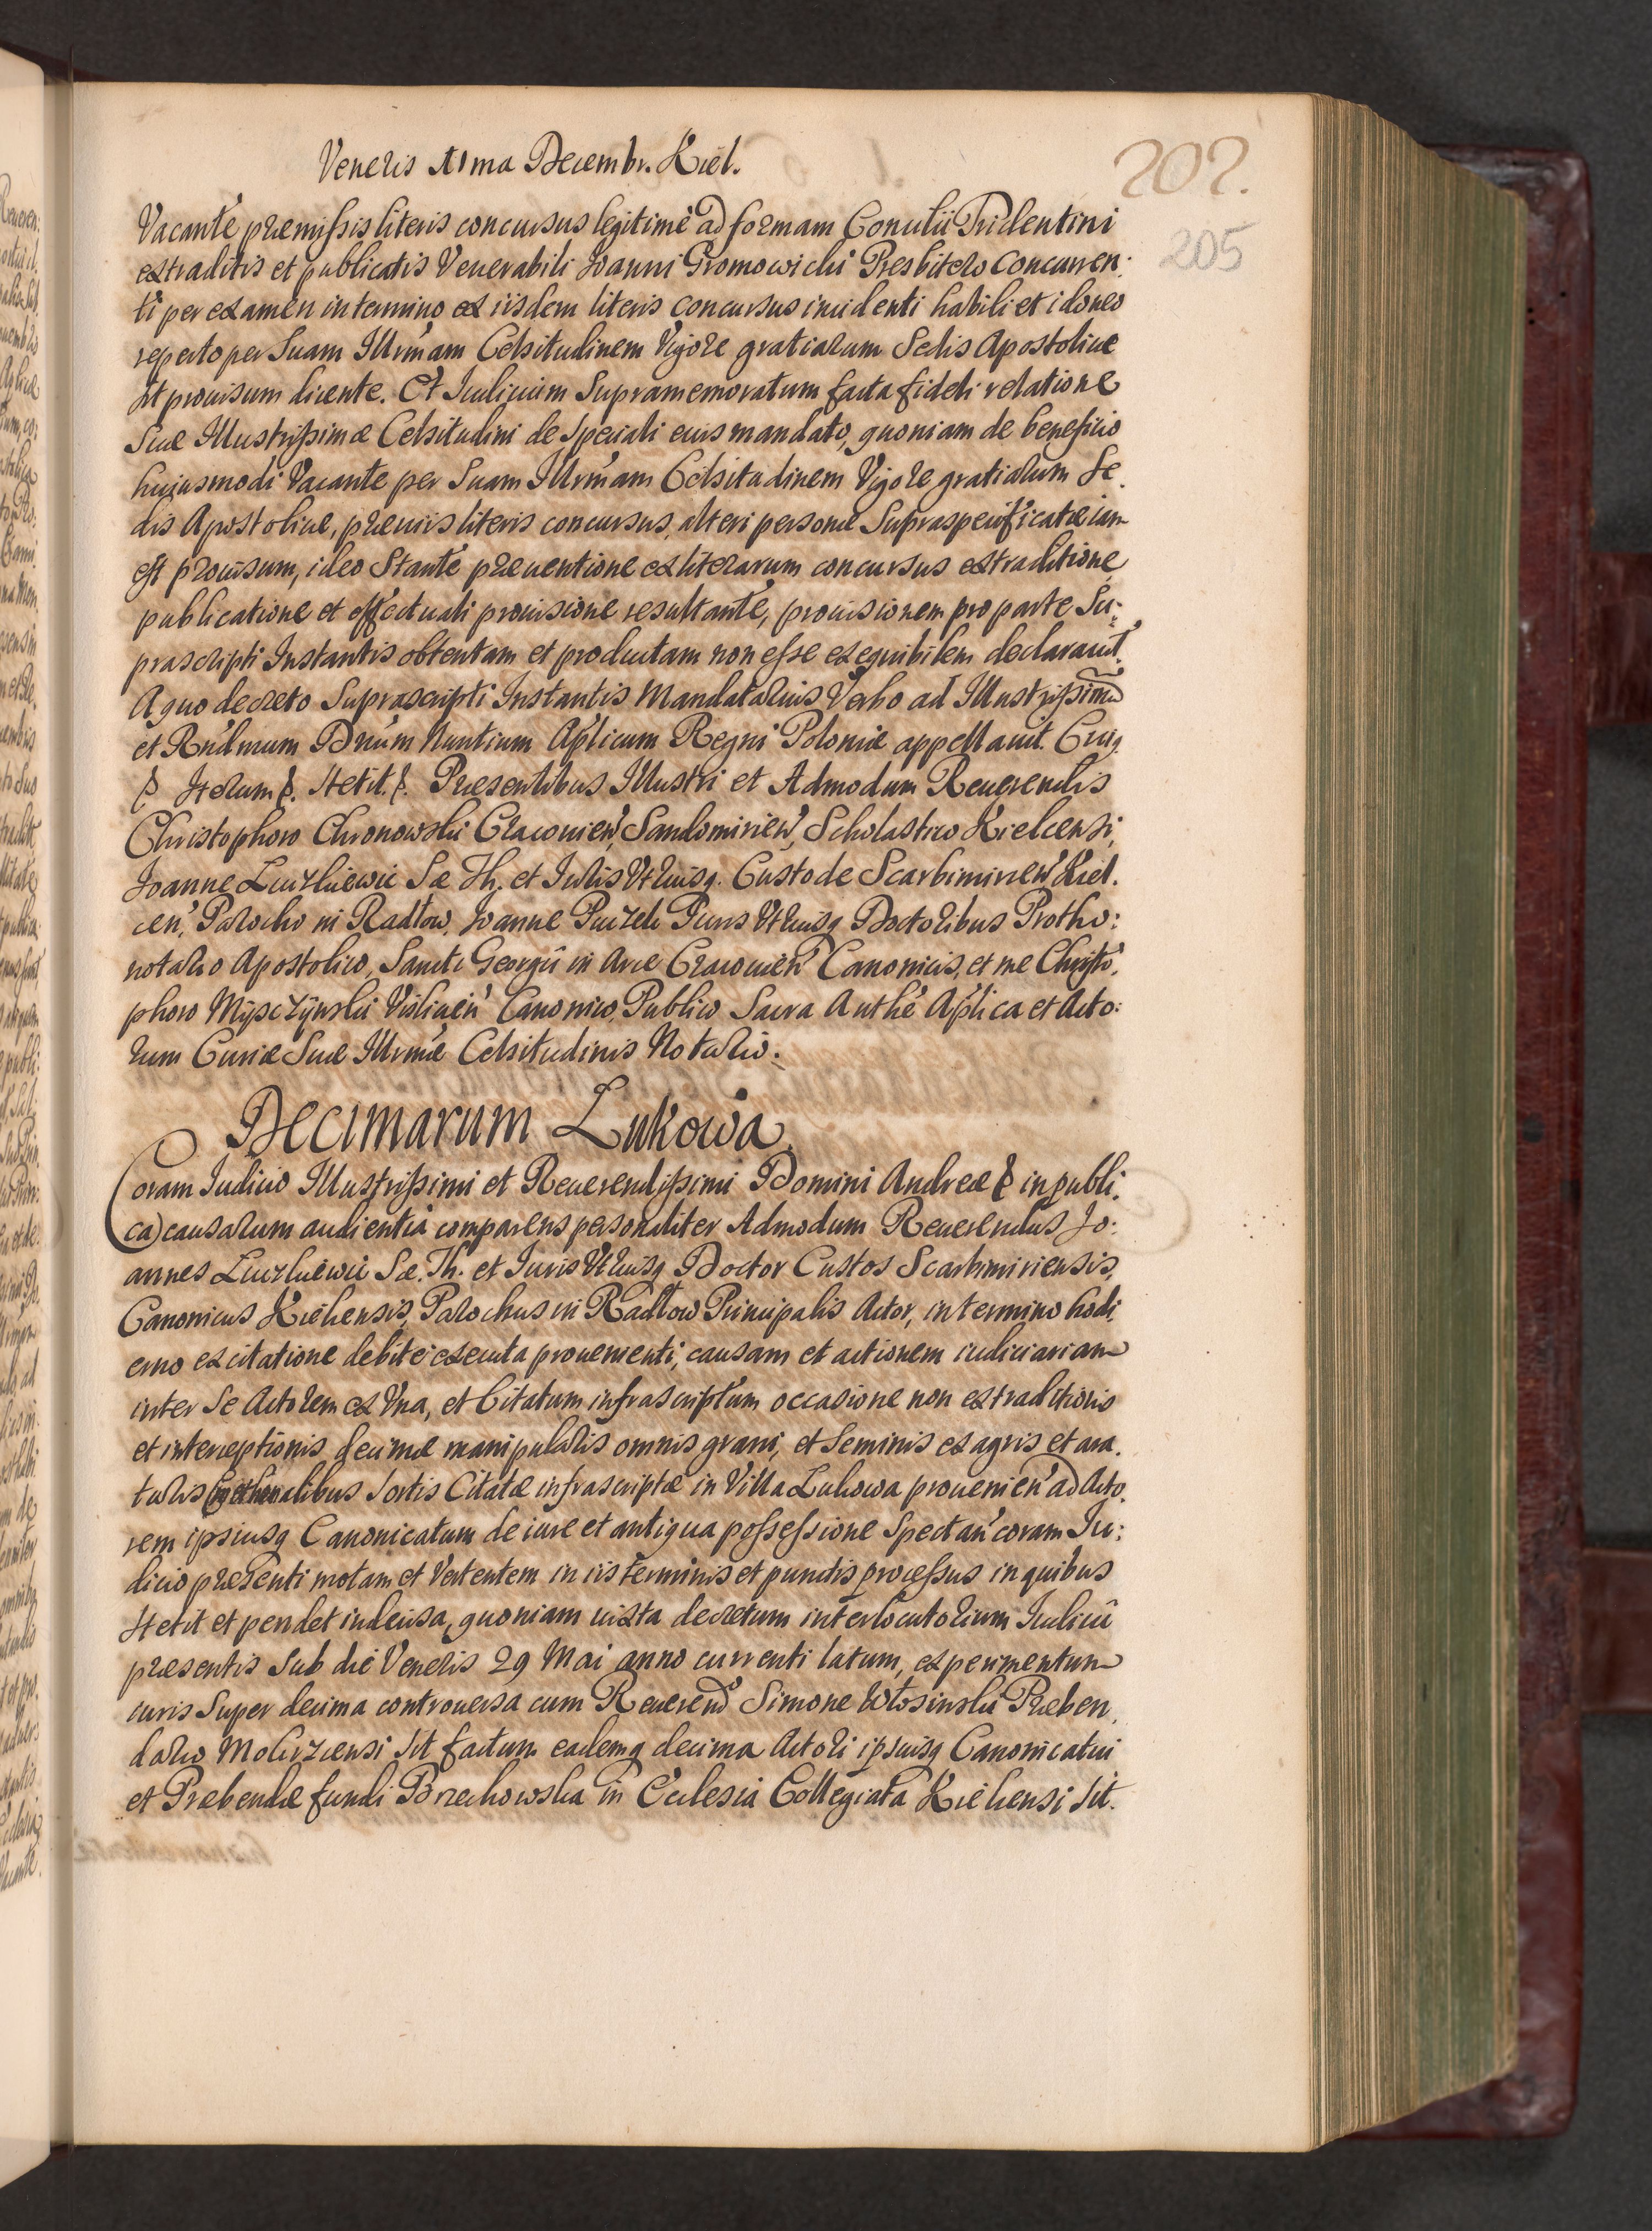 Veneris 11ma Decembr. Kiel.
202.
205
Vacante præmissis literis concursus legitimè ad formam Concilii Tridentini
extraditis et publicatis Venerabili Joanni Gromowicki Presbitero Concurren:
ti per examen in termino ex iisdem literis concursus incidenti habili et idoneo
reperto per Suam Illrmam Celsitudinem Vigore gratiarum Sedis Apostolicæ
sit prouisum dicente. Et Iudicium Supramemoratum facta fideli relatione
Suæ Illustrissimæ Celsitudini de speciali eius mandato, quoniam de beneficio
huiusmodi Vacante per Suam Illrmam Celsitudinem Vigore gratiarum Se:
dis Apostolicæ, præuiis literis concursus, alteri personæ Supraspecificatæ iam
est prouisum, ideo Stante præuentione ex literarum concursus extraditione
publicatione et effectuali prouisione resultante, prouisionem pro parte Su:
prascripti Instantis obtentam et productam non esse exequibilem declarauit.
A quo decreto Suprascripti Instantis Mandatarius Verbo ad Illustrissimũ
et Rndmum Dnum Nuntium Aplicum Regni Poloniæ appellauit. Cuiq
Iterum. Stetit. Præsentibus Illustri et Admodum Reuerendis
Christophoro Chronowski Cracouien, Sandomirien, Scholastico Kielcensi,
Joanne Luczkiewic Sæ Th. et Iuris Vtriusq Custode Scarbimirien Kiel:
cen, Parocho in Radłow, Joanne Puczek Iuris Vtriusq Doctoribus Protho:
notario Apostolico, Sancti Georgii in Arce Cracouien Canonicis, et me Christo:
phoro Mysczynski Vislicien Canonico, Publico Sacra Authe Aplica et Acto:
rum Curiæ Suæ Illrmæ Celsitudinis Notario.
Decimarum Lukowa
Coram Iudicio Illustrissimi et Reuerendissimi Domini Andreæ in publi:
ca causarum audientia comparens personaliter Admodum Reuerendus Jo:
annes Luczkiewic Sæ. Th. et Iuris Vtriusq Doctor Custos Scarbimiriensis,
Canonicus Kielcensis, Parochus in Radłow Principalis Actor, in termino hodi:
erno ex citatione debitè executa prouenienti, causam et actionem iudiciariam
inter Se Actorem ex Vna, et Citatum infrascriptum occasione non extraditionis
et interceptionis decimæ manipularis omnis grani, et Seminis ex agris et ara:
turis Cmethonalibus Sortis Citatæ infrascriptæ in Villa Lukowa prouenien ad Acto:
rem ipsiusq Canonicatum de iure et antiqua possessione Spectan coram Iu:
dicio præsenti motam et Vertentem in iis terminis et punctis processus in quibus
Stetit et pendet indecisa, quoniam iuxta decretum interlocutorium Iudicii
præsentis Sub die Veneris 29 Mai anno currenti latum, experimentum
iuris Super decima controuersa cum Reuerend Simone Włosinski Præben:
dario Mokrzcensi sit factum eademq decima Actori ipsiusq Canonicatui
et Præbendæ fundi Brzechowska in Ecclesia Collegiata Kielcensi sit.